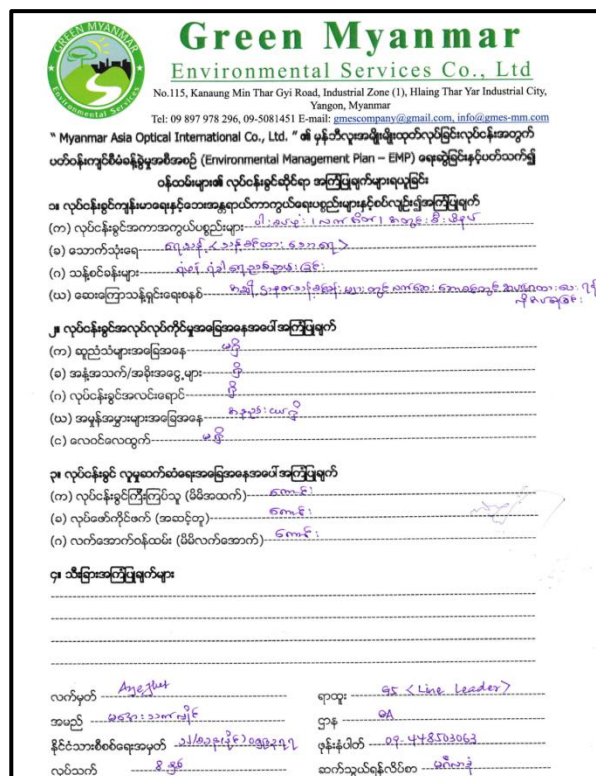 GREEN MYANMAR
Environmental Services
Green Myanmar
Environmental Services Co., Ltd
No.115, Kanaung Min Thar Gyi Road, Industrial Zone (1), Hlaing Thar Yar Industrial City,
Yangon, Myanmar
Tel: 09 897 978 296, 09-5081451 E-mail: gmescompany@gmail.com, info@gmes-mm.com
“ Myanmar Asia Optical International Co., Ltd. ” ၏ မှန်ဘီလူးအမျိုးမျိုးထုတ်လုပ်ခြင်းလုပ်ငန်းအတွက်
ပတ်ဝန်းကျင်စီမံခန့်ခွဲမှုအစီအစဉ် (Environmental Management Plan – EMP) ရေးဆွဲခြင်းနှင့်ပတ်သက်၍
ဝန်ထမ်းများ၏ လုပ်ငန်းခွင်ဆိုင်ရာ အကြံပြုချက်များရယူခြင်း
၁။ လုပ်ငန်းခွင်ကျန်းမာရေးနှင့်ဘေးအန္တရာယ်ကာကွယ်ရေးပစ္စည်းများနှင့်စပ်လျဉ်း၍အကြံပြုချက်
(က) လုပ်ငန်းခွင်အကာအကွယ်ပစ္စည်းများ
(ခ) သောက်သုံးရေ ရေသန့်
(ဂ) သန့်စင်ခန်းများ
(ဃ) ဆေးကြောသန့်ရှင်းရေးစနစ်
၂။ လုပ်ငန်းခွင်အလုပ်လုပ်ကိုင်မှုအခြေအနေအပေါ် အကြံပြုချက်
(က) ဆူညံသံများအခြေအနေ မရှိ
(ခ) အနံ့အသက်/အခိုးအငွေ့များ ရှိ
(ဂ) လုပ်ငန်းခွင်အလင်းရောင် ရှိ
(ဃ) အမှုန်အမွှားများအခြေအနေ အနည်းငယ်ရှိ
(င) လေဝင်လေထွက် မရှိ
၃။ လုပ်ငန်းခွင် လူမှုဆက်ဆံရေးအခြေအနေအပေါ် အကြံပြုချက်
(က) လုပ်ငန်းခွင်ကြီးကြပ်သူ (မိမိအထက်) ကောင်း
(ခ) လုပ်ဖော်ကိုင်ဖက် (အဆင့်တူ) ကောင်း
(ဂ) လက်အောက်ဝန်ထမ်း (မိမိလက်အောက်) ကောင်း
၄။ သီးခြားအကြံပြုချက်များ
လက်မှတ်
ရာထူး G5 <Line Leader>
အမည်
ဌာန QA
နိုင်ငံသားစိစစ်ရေးအမှတ်
ဖုန်းနံပါတ် 09-448503063
လုပ်သက် 8 နှစ်
ဆက်သွယ်ရန်လိပ်စာ